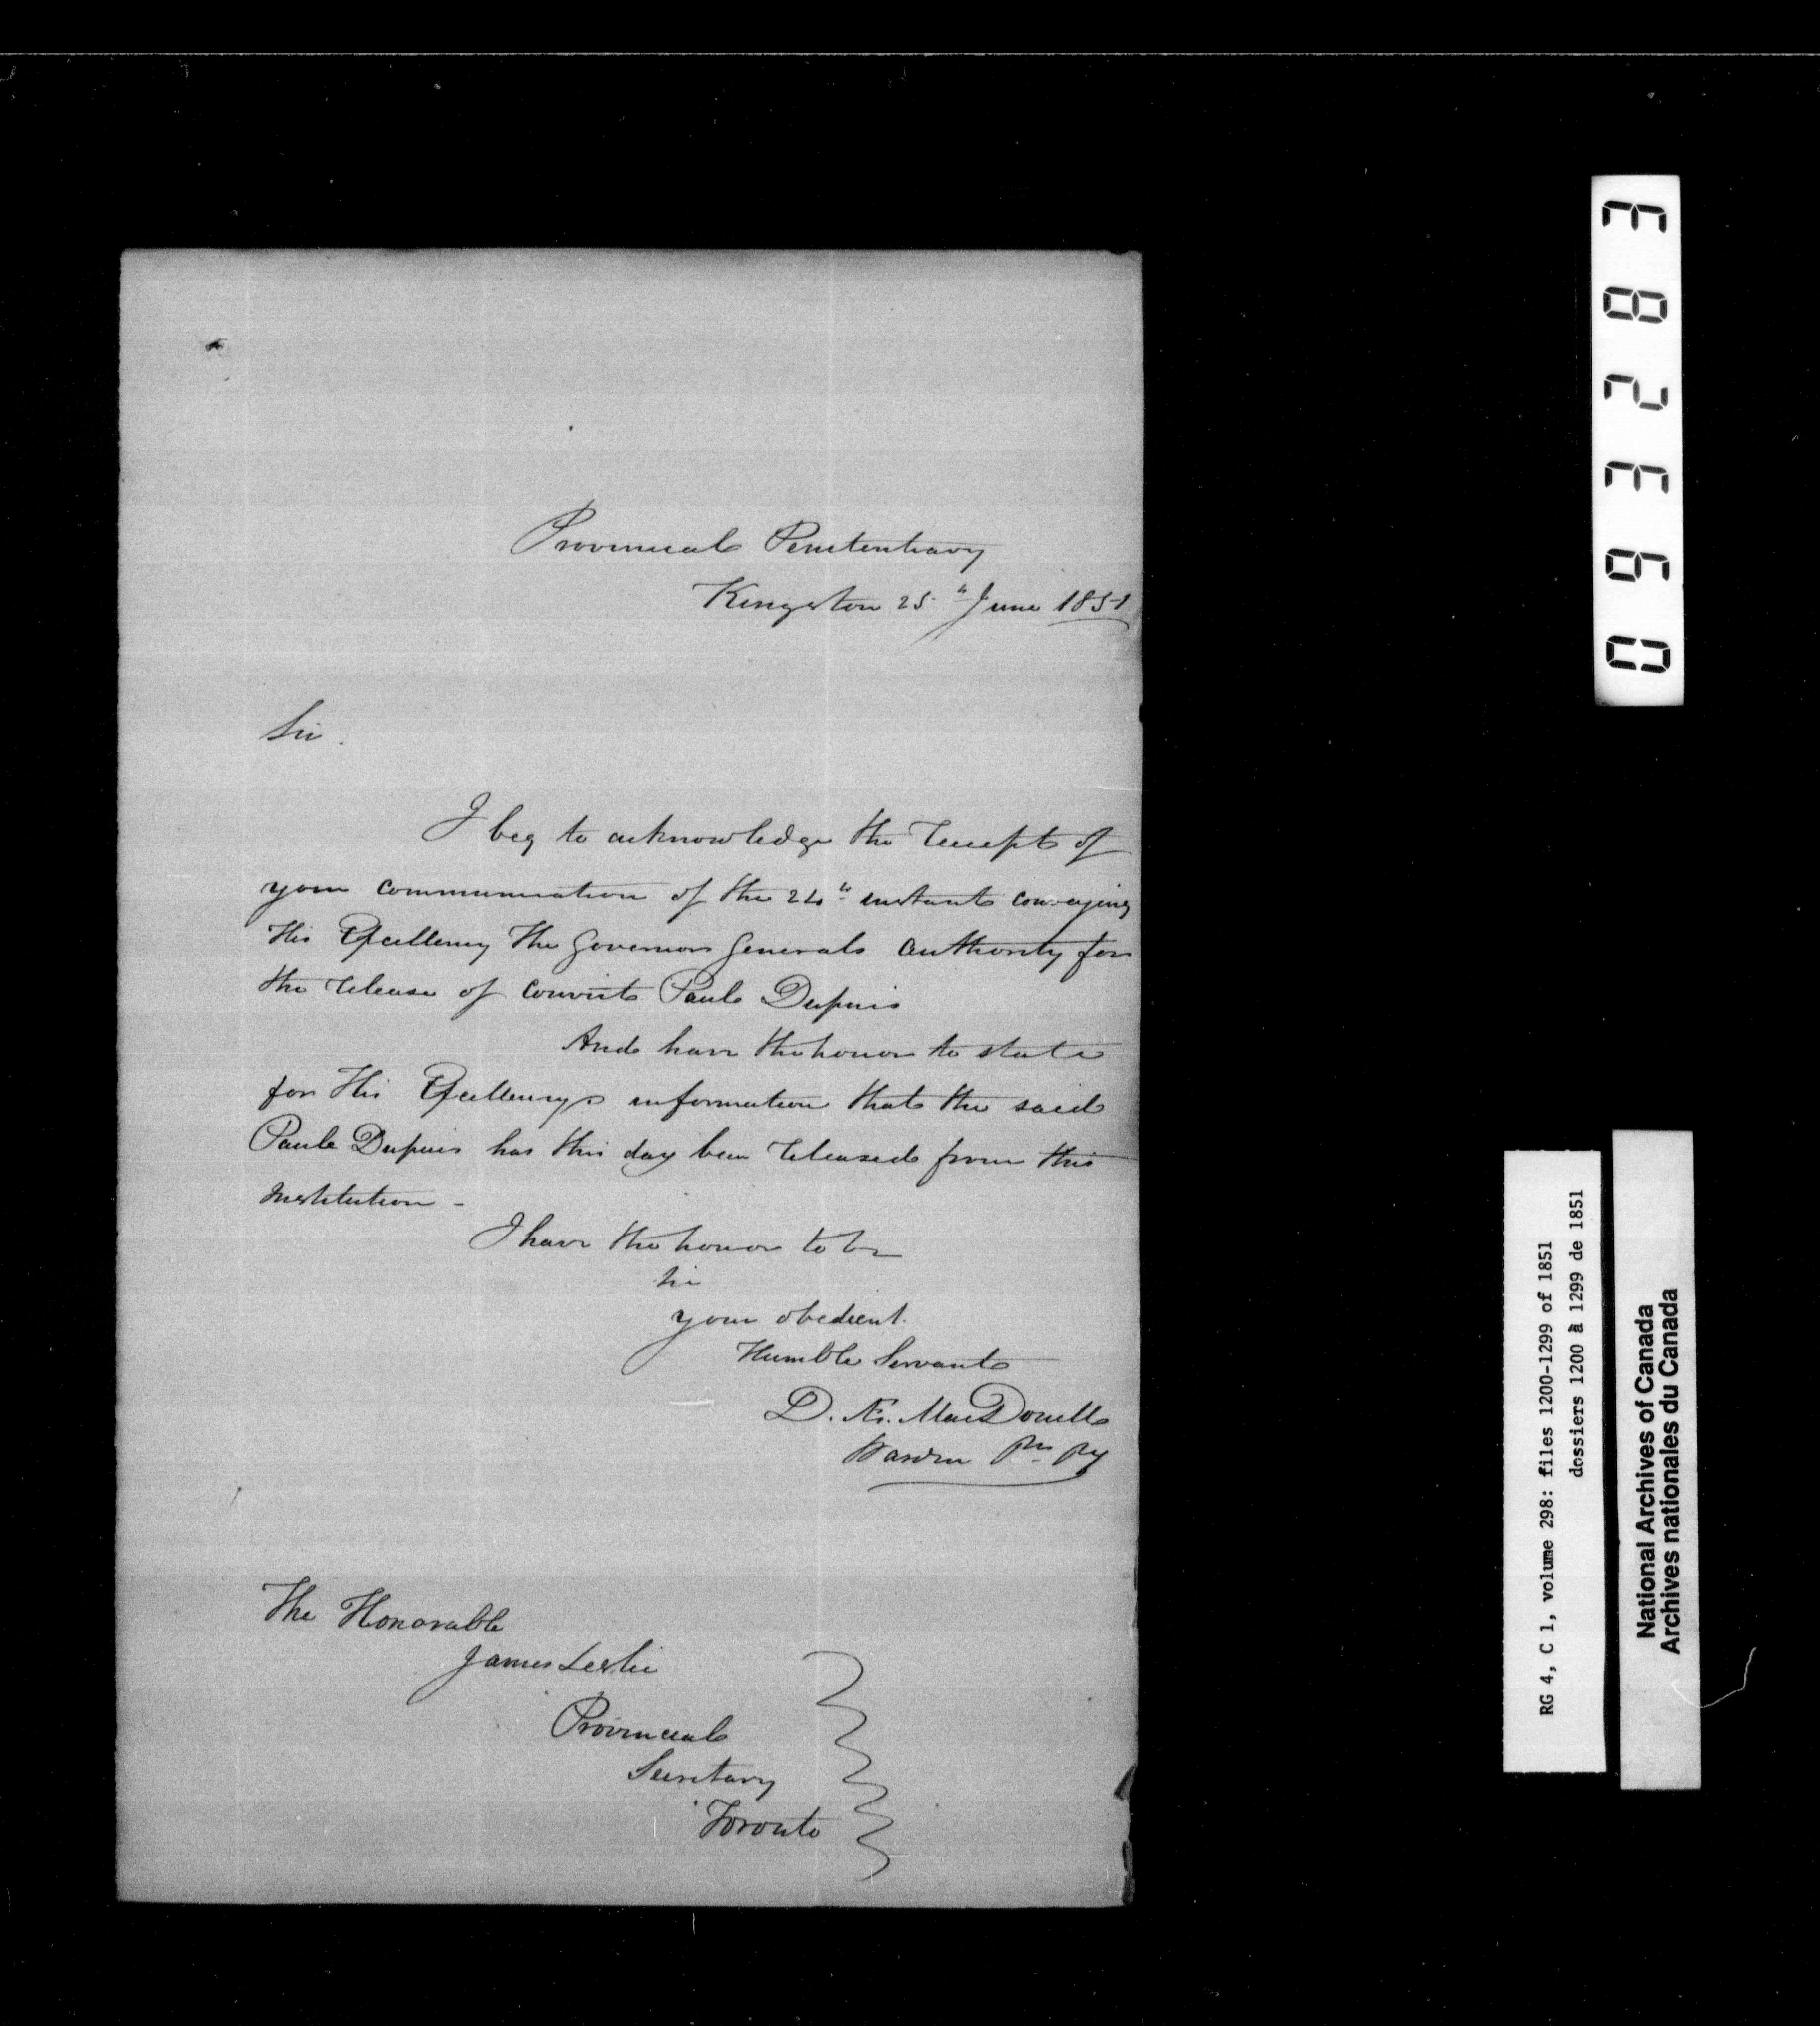 Provincial Penitentiary
Kingston 25th June 1851
Sir.
I beg to acknowledge the receipt of
your communication of the 24th instant conveying
His Excellency The Governor Generals authority for
the release of convict Paul Dupuis
And have the honor to state
for His Excellencys information that the said
Paul Dupuis has this day been released from this
Institution -
I have the honor to be
Sir
your obedient
Humble Servant
D. Æ. MacDonell
Warden Pro. Py
The Honorable
James Leslie
Provincial
Secretary
Toronto
093283
RG 4, C 1, volume 298: files 1200-1299 of 1851
dossiers 1200 à 1299 de 1851
National Archives of Canada
Archives nationales du Canada